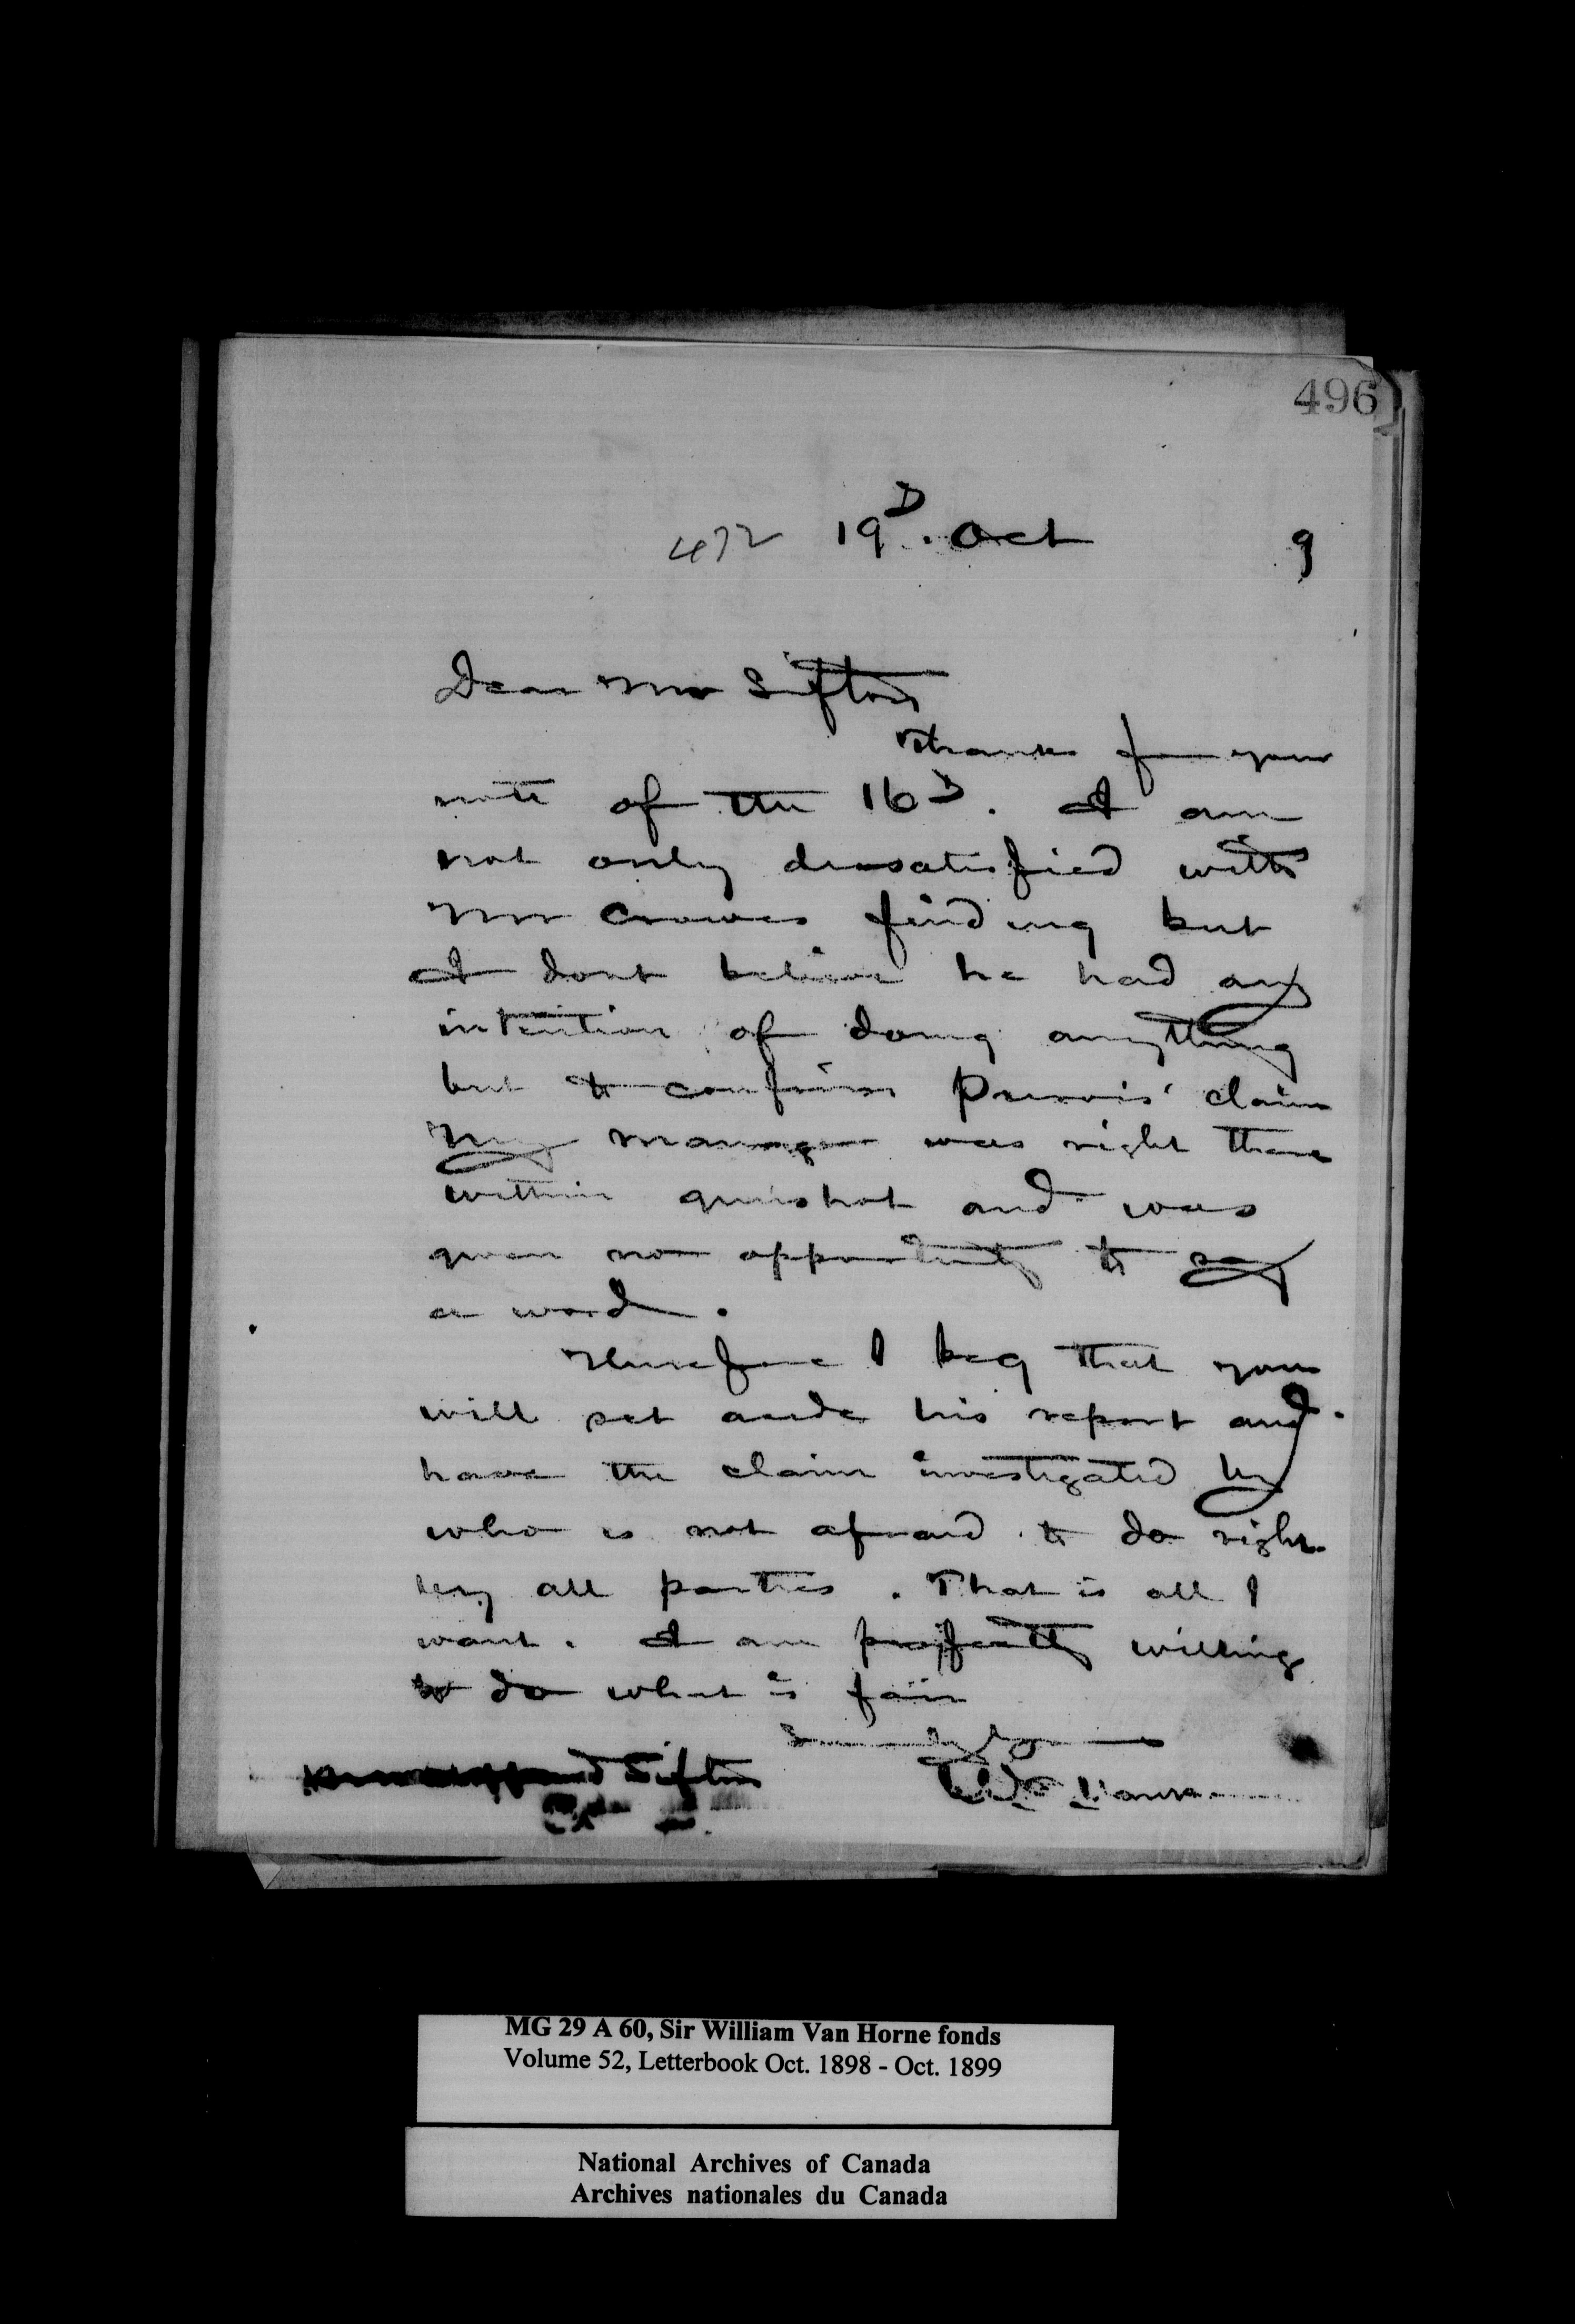 496
472 19th. Oct 9
Dear Mr Sifton
Thanks for your
note of the 16th. I am
not only dissatisfied with
Mr Crowes finding but
I dont believe he had any
intention of doing anything
but to confirm Purvis' claim
My manager was right there
within gunshot and was
given no opportunity to say
a word.
Therefore I beg that you
will set aside his report and
have the claim investigated by
who is not afraid to do right
by all parties. That is all I
want. I am perfectly willing
to do what is fair
Sincerely Yours
Sifton
MG 29 A 60, Sir William Van Horne fonds
Volume 52, Letterbook Oct. 1898 - Oct. 1899
National Archives of Canada
Archives nationales du Canada